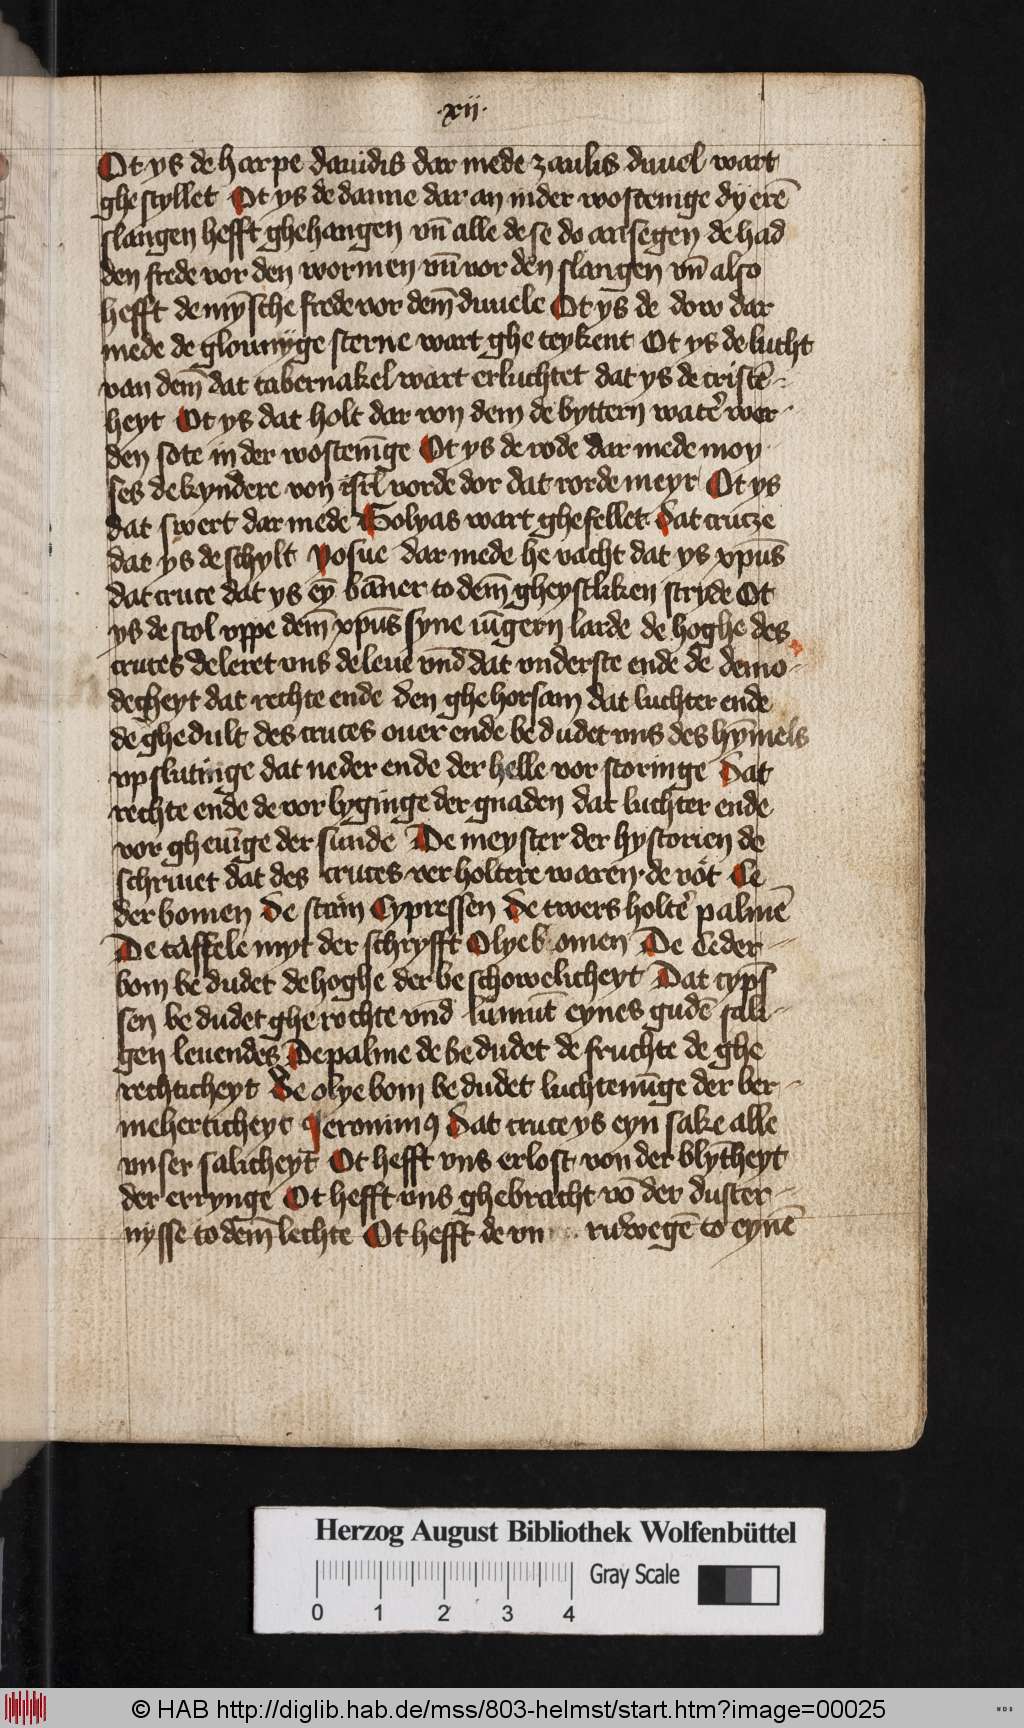 ·xij·
Ot ys de harpe dauidis dar mede zaulis duuel wart
ghestyllet Ot ys de danne dar an in der wostenige dy erē
slangen hefft ghehangen vn̄ alle de se do an segen de had
den frede vor den wormen vn̄ vor den slangen vn̄ also
hefft de mȳsche frede vor dem̄ duuele Ot ys de dow dar
mede de sterne wart ghe teykent Ot ys de lucht
van dem̄ dat tabernakel wart erluchtet dat ys de cristē-
heyt Ot ys dat holt dar von dem de byttern wat̉ wer-
den sote in der wostenīge Ot ys de rode dar mede moy
ses de kyndere von isrl̄ vorde dor dat rorde meyr Ot ys
dat swert dar mede Golyas wart ghefellet dat crucze
dat ys de schylt yosue dar mede he vacht dat ys xpūs
dat cruce dat ys eȳ bāner to dem̄ gheystliken stryde Ot
ys de stol vppe dem̄ xpūs syne iūgern larde de hoghe des
cruces de leret vns de leue vnd dat vnderste ende de demo-
decheyt dat rechte ende den ghehorsam dat luchter ende
de ghedult des cruces ouer ende be dudet vns des hȳmels
vpslutinge dat neder ende der helle vor storinge Dat
rechte ende de vor lyginge der gnaden dat luchter ende
vor gheuīge der sunde De meyster der hystorien de
schriuet dat des cruces ver holtere waren· de vöt Ce
der bomen De stam Cypressen De twers holt̉e palmē
De taffele myt der schryfft Olyeb omen De Ceder-
bom be dudet de hoghe der be schowelicheyt Dat cyp̄s
sen be dudet gherochte vnd lumūt eynes gudē sali-
gen leuendes De palme de be dudet de fruchte de ghe
rechticheyt De olye bom be dudet luchtenīge der ber-
meherticheyt Jeronimꝯ Dat cruce ys eyn sake alle
vnser salicheyt Ot hefft vns erlost von der blȳtheyt
der errynge Ot hefft vns ghebracht vō der duster-
nysse to dem̄ lechte Ot hefft de vn ruwegē to eynē
Herzog August Bibliothek Wolfenbüttel
Gray Scale
0 1 2 3 4
© HAB http://diglib.hab.de/mss/803-helmst/start.htm?image=00025